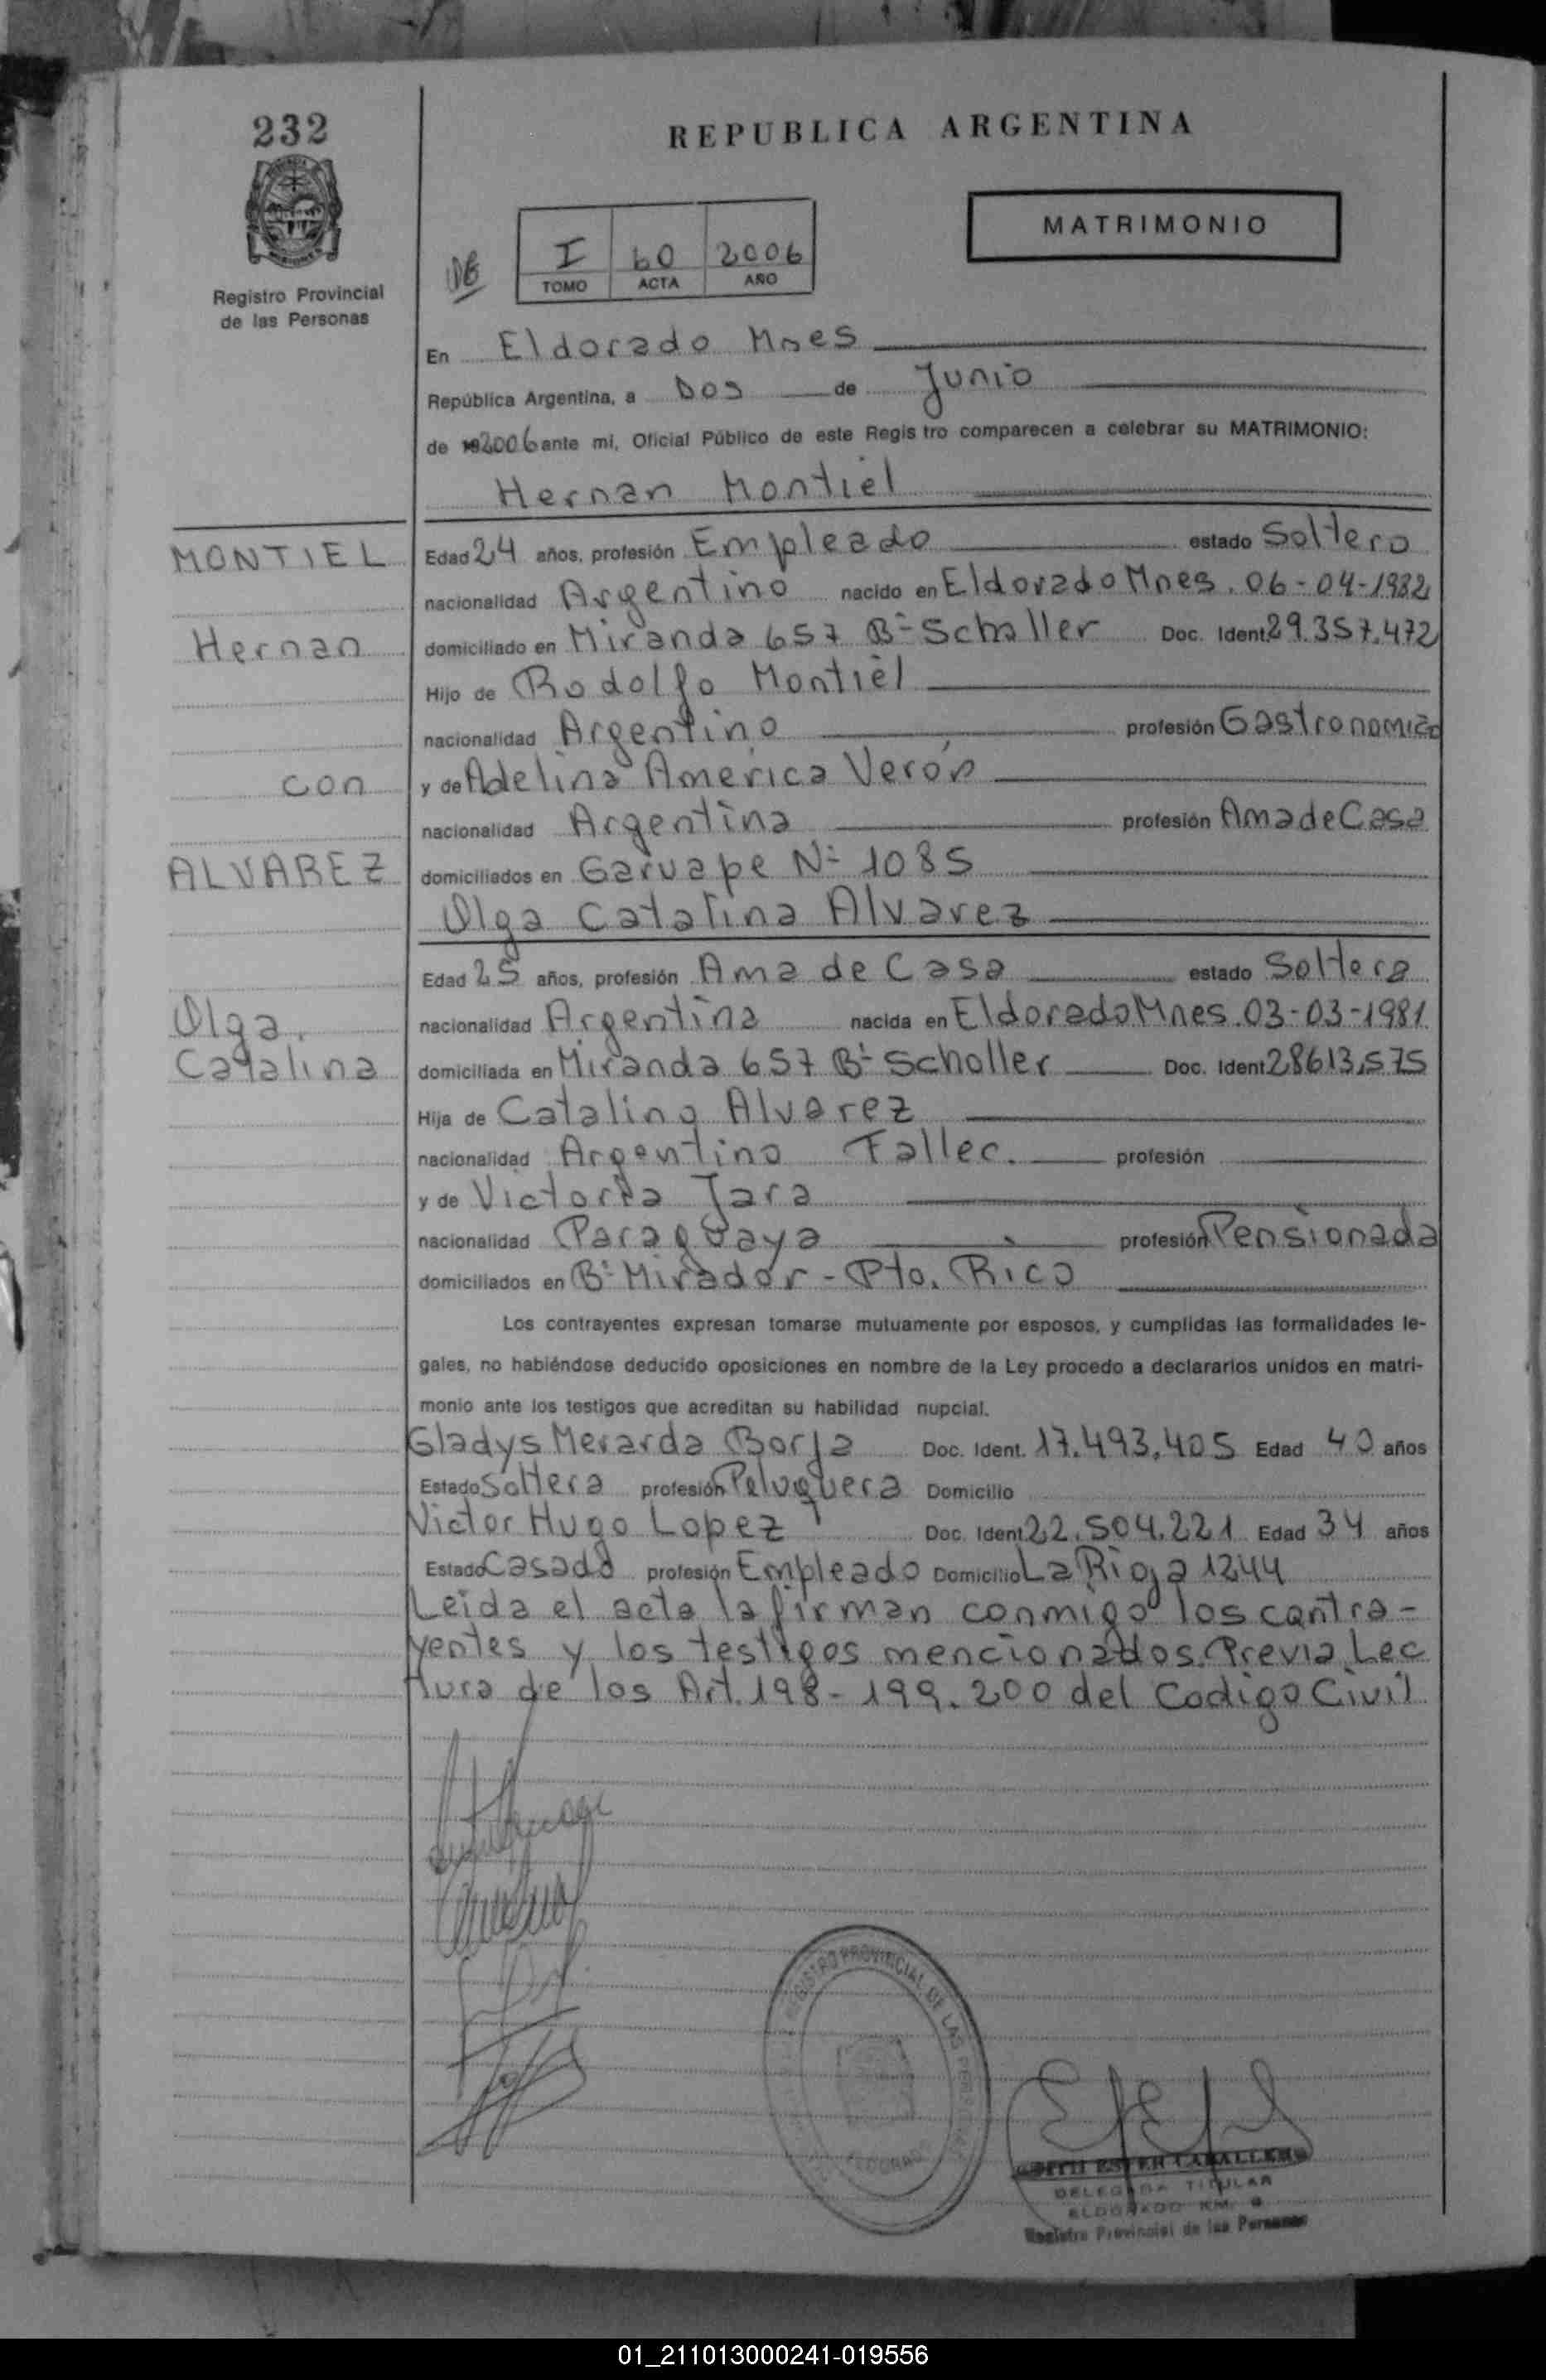 232
REPUBLICA ARGENTINA
MATRIMONIO
DE
I 60 2006
TOMO ACTA AÑO
Registro Provincial
de las Personas
En Eldorado Mnes
República Argentina, a Dos de Junio
de 2006 ante mi, Oficial Público de este Regis tro comparecen a celebrar su MATRIMONIO:
Hernan Montiel
MONTIEL
Hernan
con
ALVAREZ
Olga
Catalina
Edad 24 años, profesión Empleado estado Soltero
nacionalidad Argentino nacido en Eldorado Mnes. 06-04-1982
domiciliado en Miranda 657 Bº Scholler Doc. Ident. 29.357.472
Hijo de Rodolfo Montiel
nacionalidad Argentino profesión Gastronomico
y de Adelina America Verón
nacionalidad Argentina profesión Ama de Casa
domiciliados en Garuape Nº 1085
Olga Catalina Alvarez
Edad 25 años, profesión Ama de Casa estado Soltera
nacionalidad Argentina nacida en Eldorado Mnes. 03-03-1981
domiciliada en Miranda 657 Bº Scholler Doc. Ident 28613.575
Hija de Catalino Alvarez
nacionalidad Argentino Fallec. profesión
y de Victoria Jara
nacionalidad Paraguaya profesión Pensionada
domiciliados en Bº Mirador - Pto. Rico
Los contrayentes expresan tomarse mutuamente por esposos, y cumplidas las formalidades le-
gales, no habiéndose deducido oposiciones en nombre de la Ley procedo a declararlos unidos en matri-
monio ante los testigos que acreditan su habilidad nupcial.
Gladys Merarda Borja Doc. Ident. 17.493.405 Edad 40 años
Estado Soltera profesión Peluquera Domicilio
Victor Hugo Lopez Doc. Ident 22.504.221 Edad 34 años
Estado Casado profesión Empleado Domicilio La Rioja 1244
Leida el acta la firman conmigo los contra-
yentes y los testigos mencionados. Previa Lec
tura de los Art. 198-199.200 del Codigo Civil
REGISTRO PROVINCIAL DE LAS PERSONAS
ELDORADO
EDITH ESTER CABALLERO
DELEGADA TITULAR
ELDORADO KM. 9
Registro Provincial de las Personas
01_211013000241-019556